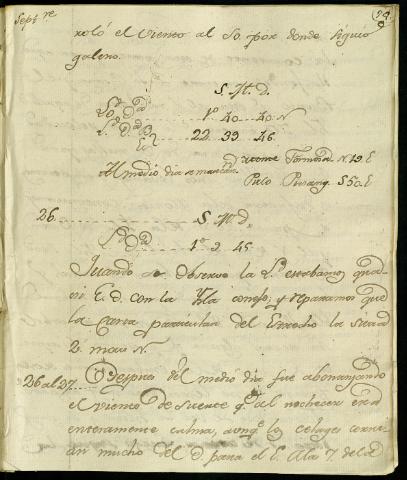 Septre
roló el viento al So. por donde siguió
galeno.
S. M. d.
1º 40 40 N
22. 39. 46.
Al medio dia se marcaron
Pulo Pinang S 50. E
26. S. M. d.
1º 2 45
Quando se Observo la Ld estabamos quasi
E. O. con la Ysla conejo, y reparamos que
la Carta particular del Estrecho la situa
2 mas N.
26 al 27. Despues del medio dia fue abonanzando
el viento de suerte qe al nochecer era
enteramente calma, aunqe los celages corrian
mucho del O para el E. A la 7. de la